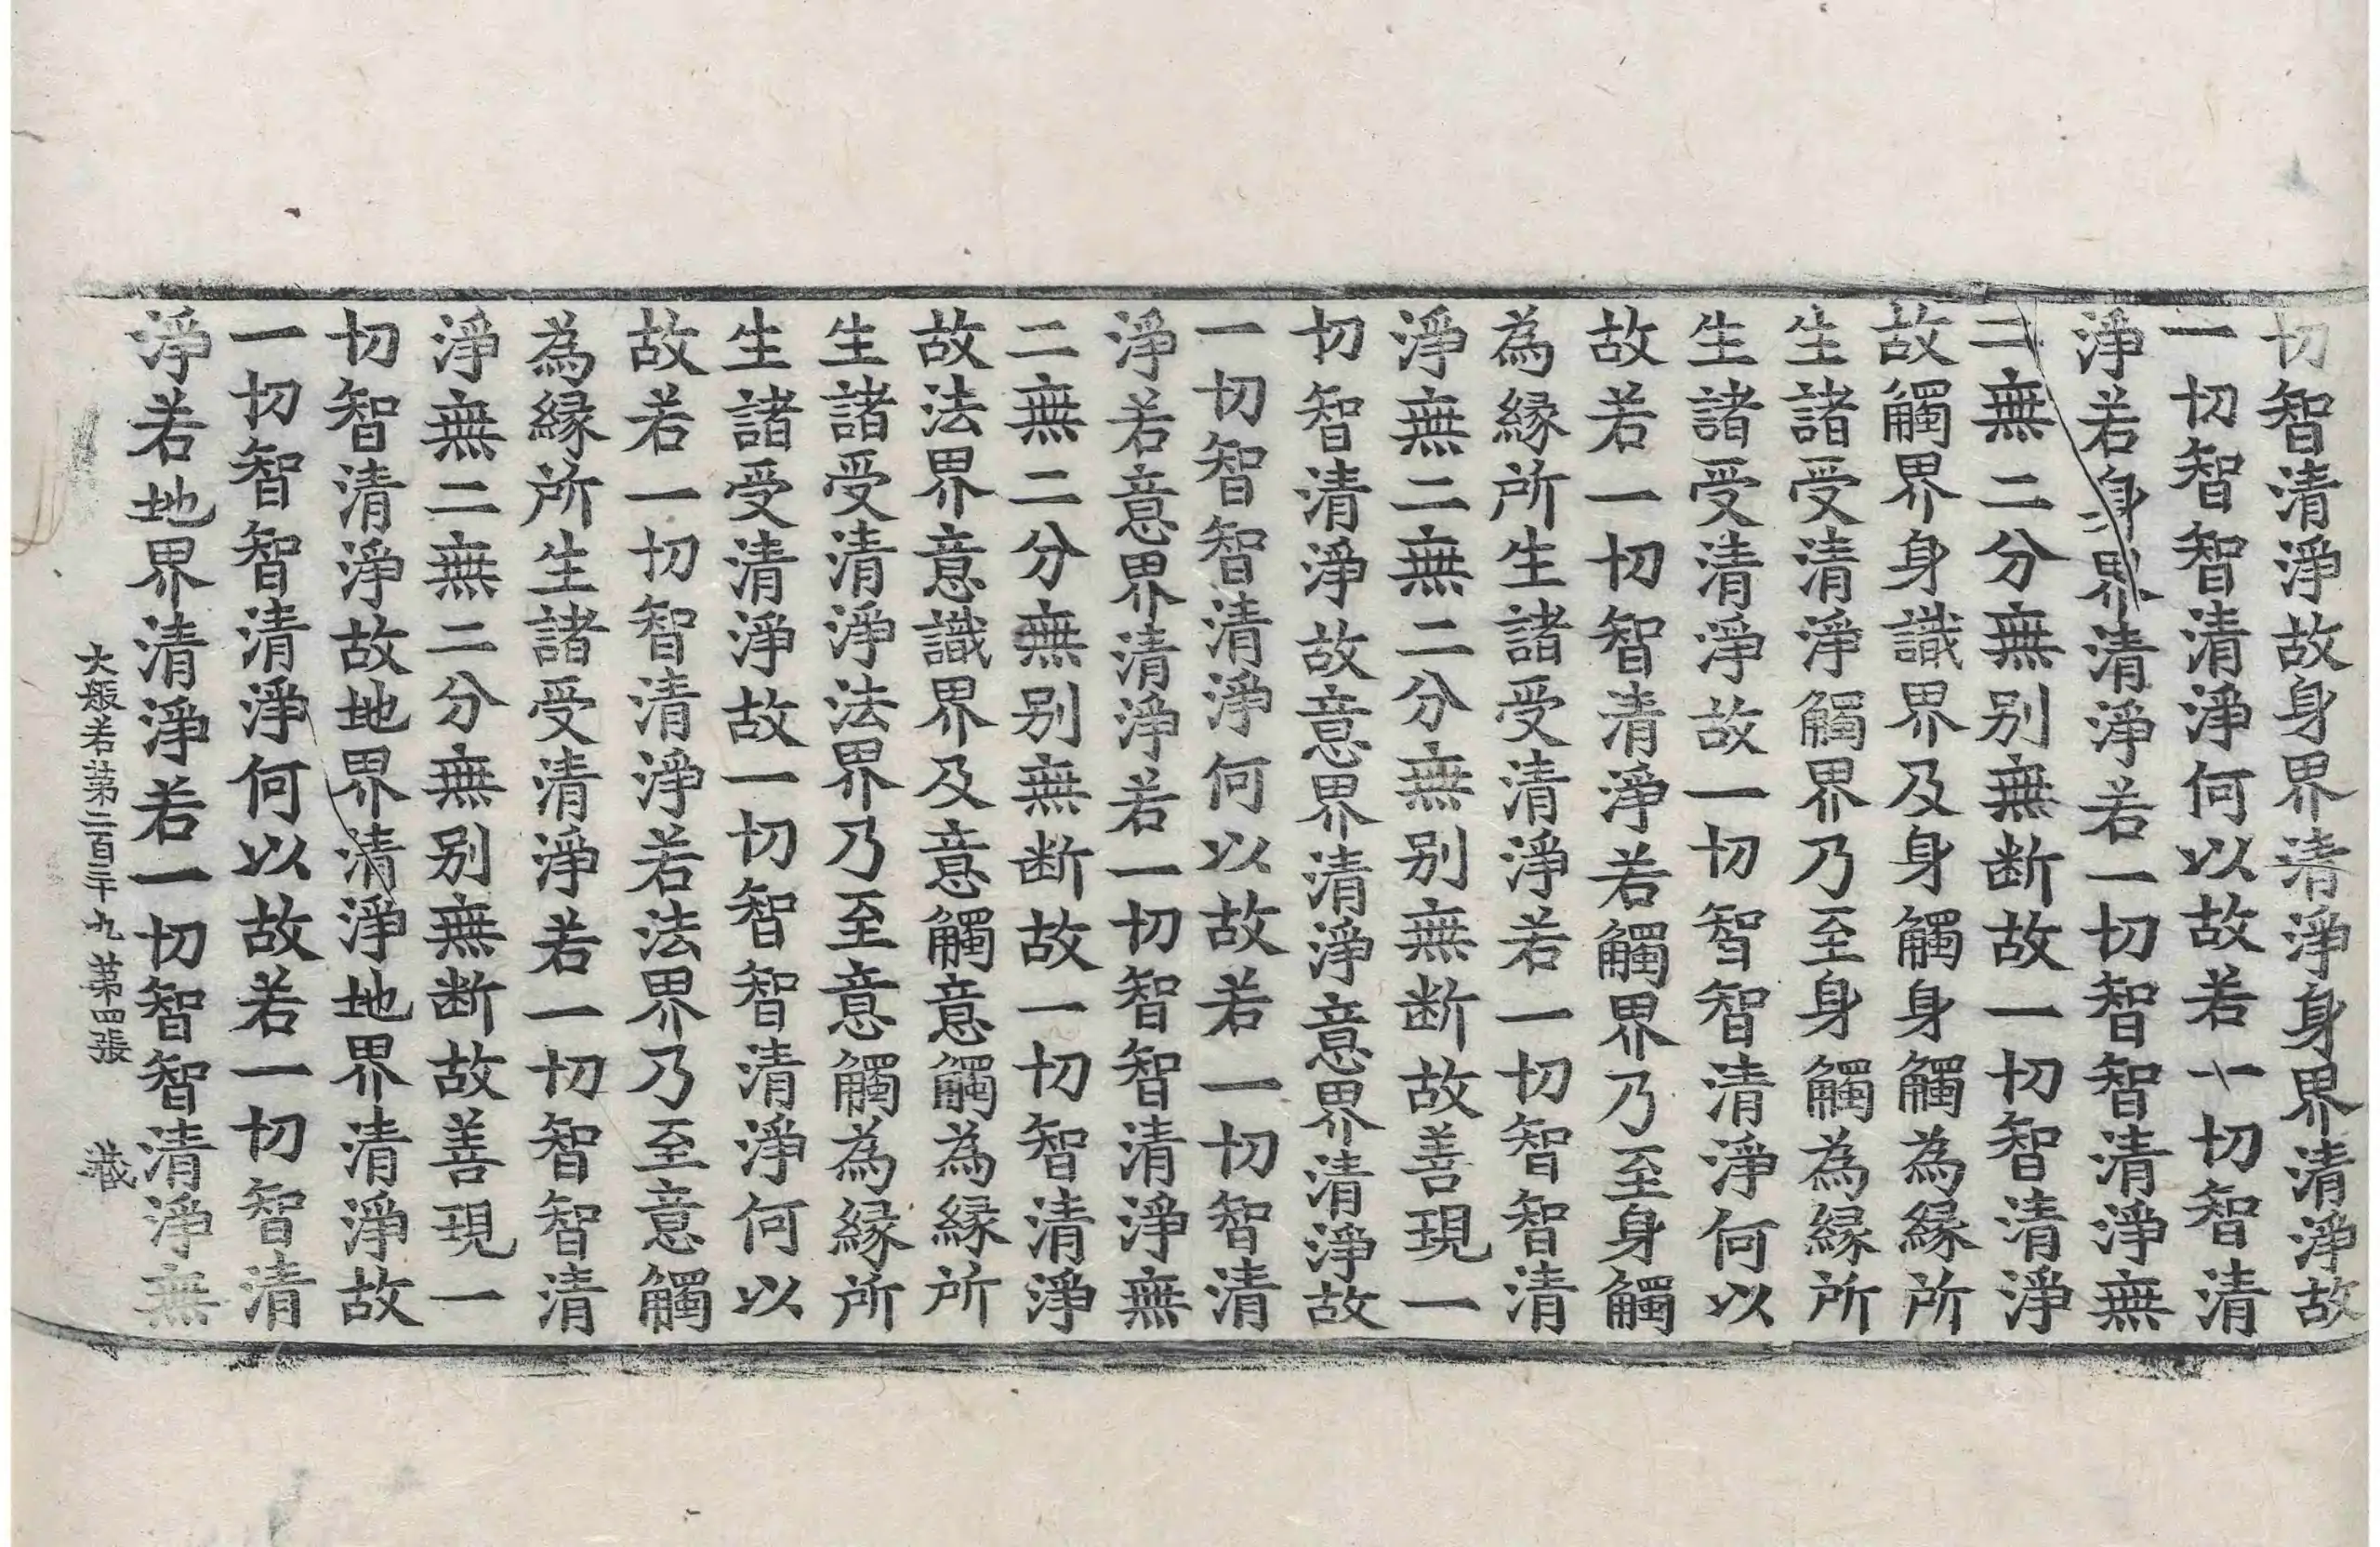 切智清淨故身界清淨身界清淨故
一切智智清淨何以故若一切智清
淨若身界清淨若一切智智清淨無
二無二分無别無断故一切智清淨
故觸界身識界及身觸身觸為縁所
生諸受清淨觸界乃至身觸為縁所
生諸受清淨故一切智智清淨何以
故若一切智清淨若觸界乃至身觸
為縁所生諸受清淨若一切智智清
淨無二無二分無别無断故善現一
切智清淨故意界清淨意界清淨故
一切智智清淨何以故若一切智清
淨若意界清淨若一切智智清淨無
二無二分無别無断故一切智清淨
故法界意識界及意觸意觸為縁所
生諸受清淨法界乃至意觸為縁所
生諸受清淨故一切智智清淨何以
故若一切智清淨若法界乃至意觸
為縁所生諸受清淨若一切智智清
淨無二無二分無别無断故善現一
切智清淨故地界清淨地界清淨故
一切智智清淨何以故若一切智清
淨若地界清淨若一切智智清淨無
大般若第二百三十九 第四張 藏